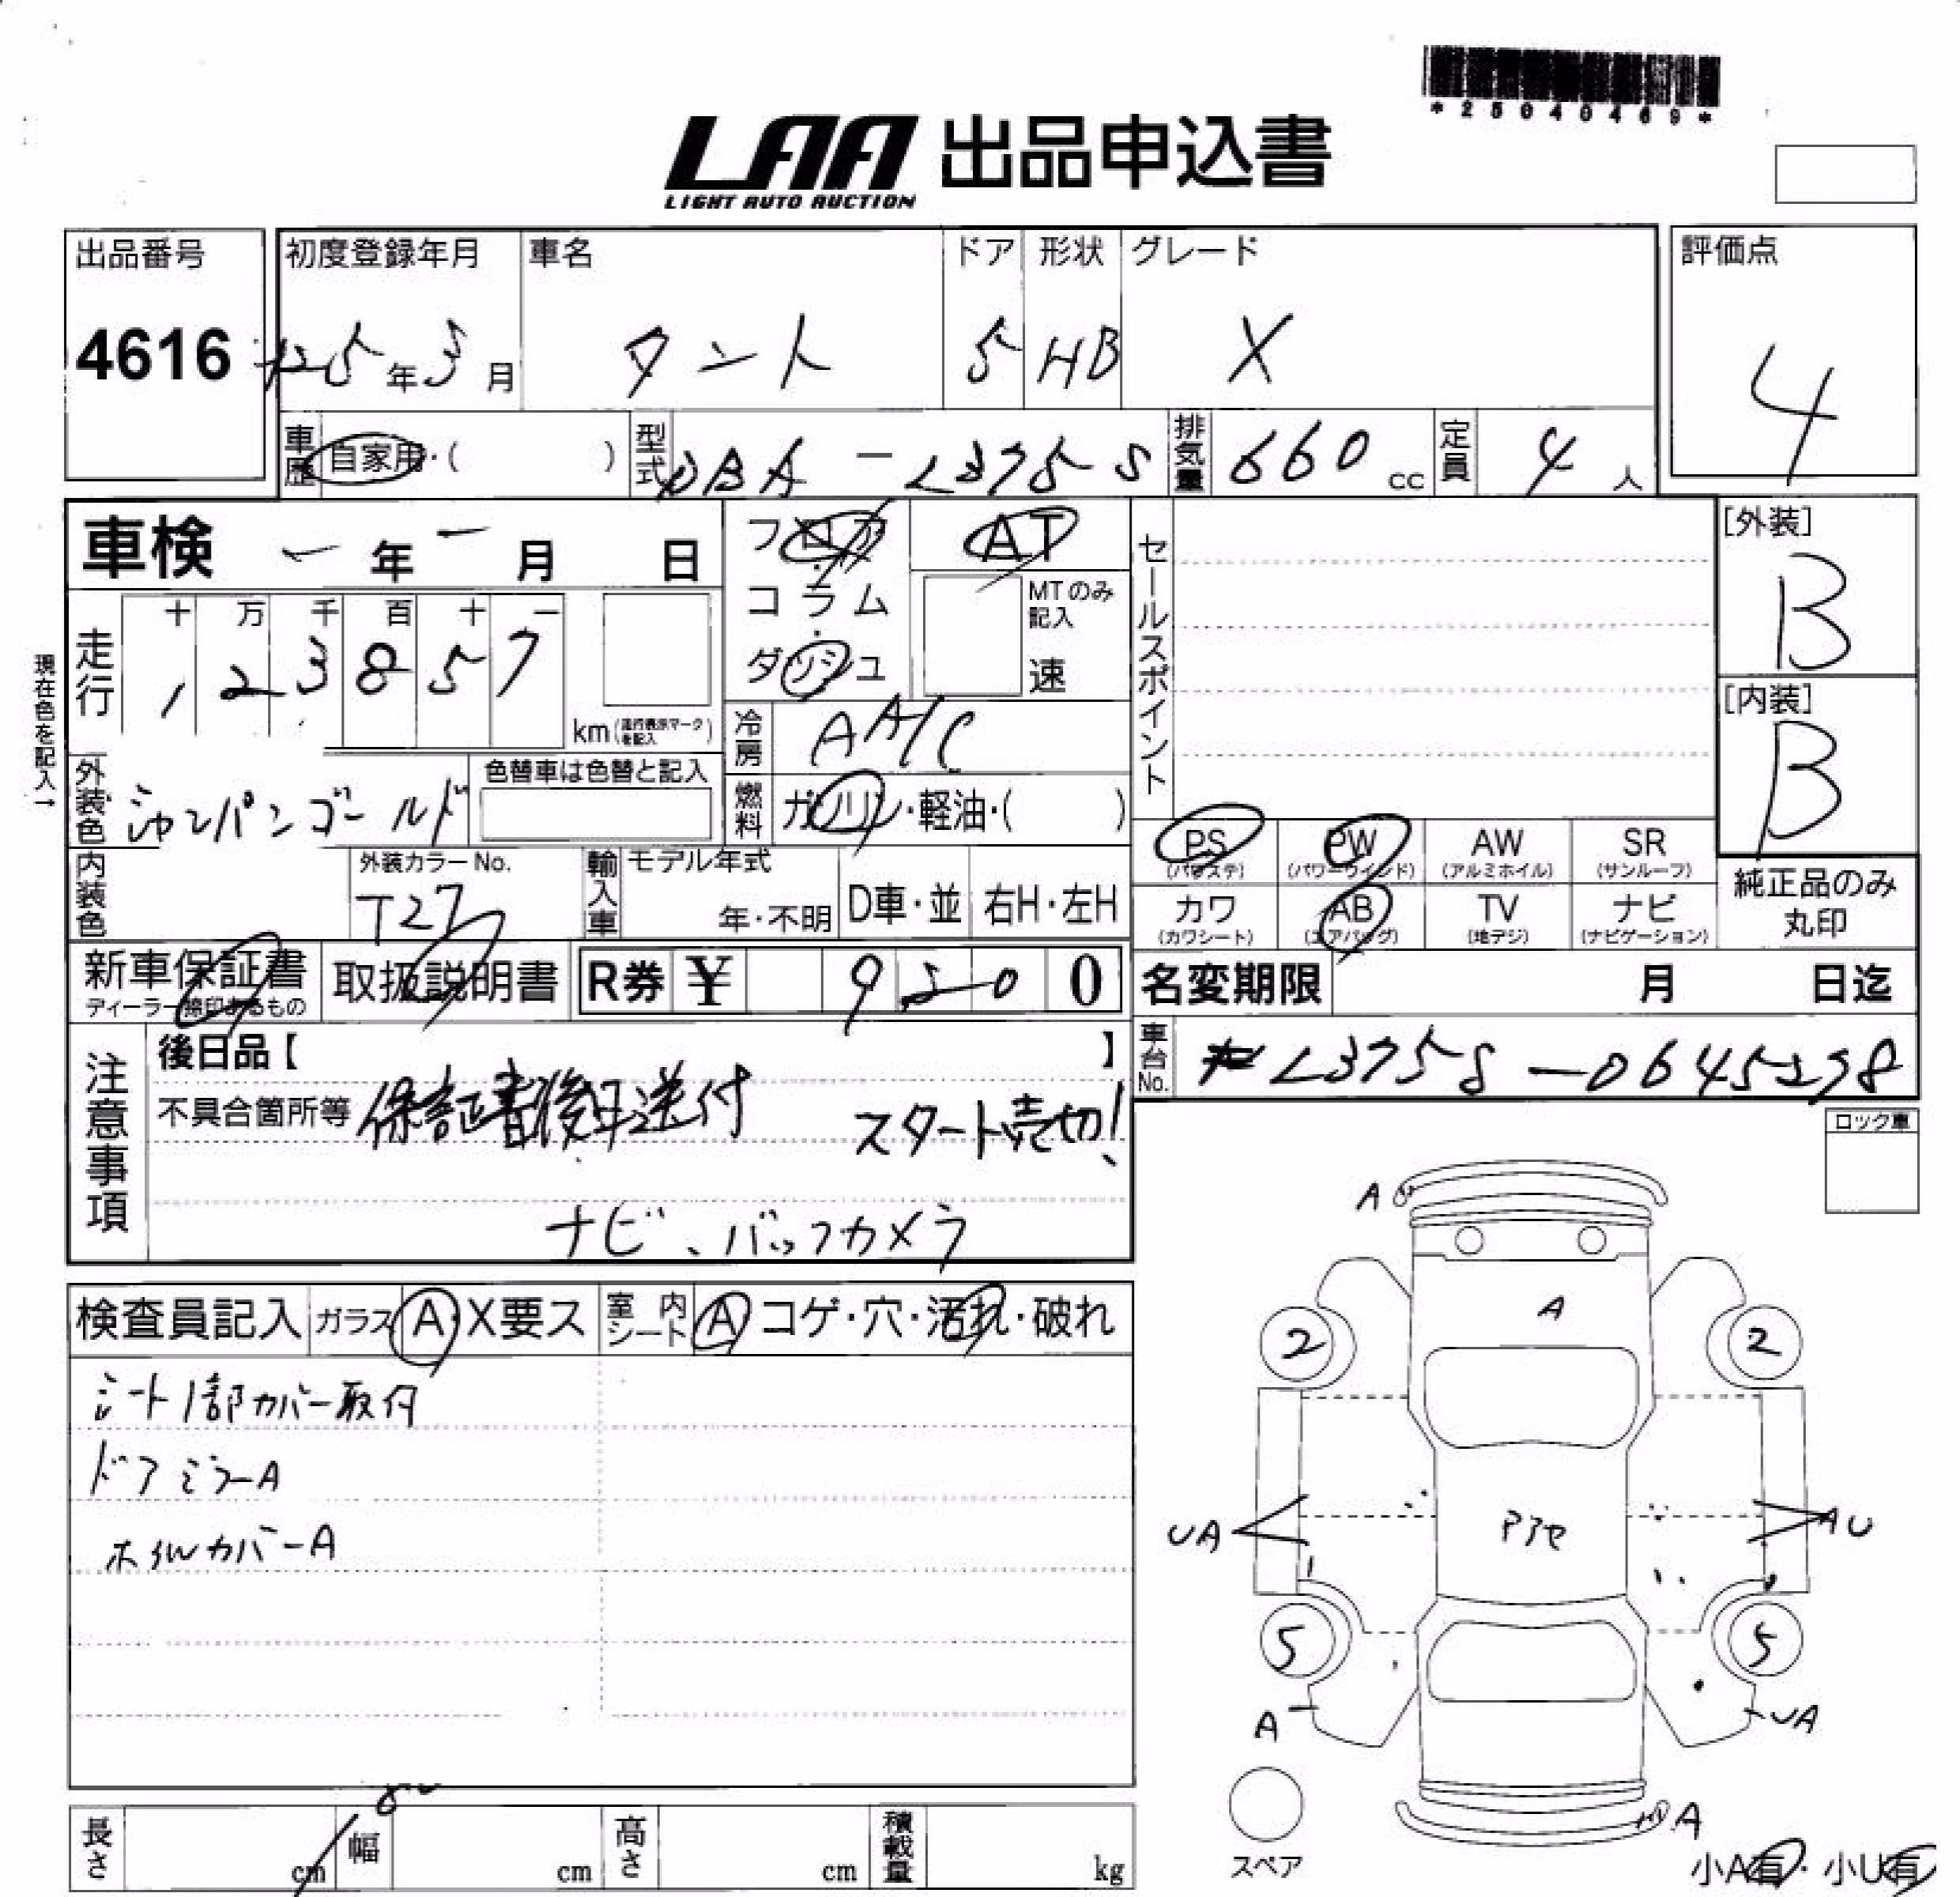 *25040469*
LAA 出品申込書
LIGHT AUTO AUCTION
出品番号 初度登録年月 車名 ドア 形状 グレード 評価点
4616 H25年3月 タント 5 HB X 4
車歴 自家用・( ) 型式 DBA-L375S 排気量 660 cc 定員 4 人
車検 - 年 - 月 日 フロア AT [外装]
コラム MTのみ記入 B
ダッシュ 速
走行 十 万 千 百 十 一
1 2 3 8 5 7 km(走行表示マークを記入)
現在色を記入→
セールスポイント
[内装]
B
冷房 AA/C
外装色 シャンパンゴールド 色替車は色替と記入
燃料 ガソリン・軽油・( )
PS (パワステ) PW (パワーウィンド) AW (アルミホイル) SR (サンルーフ)
カワ (カワシート) AB (エアバッグ) TV (地デジ) ナビ (ナビゲーション)
純正品のみ
丸印
内装色 外装カラーNo. T27 輸入車 モデル年式 年・不明 D車・並 右H・左H
新車保証書 取扱説明書 R券 ¥ 9520 0 名変期限 月 日迄
ディーラー捺印あるもの
車台No. L375S-0645238
注意事項 後日品【 】
不具合箇所等 保証書後日送付 スタート売切!
ナビ、バックカメラ
ロック車
検査員記入 ガラス A・X要ス 室内シート A コゲ・穴・汚れ・破れ
シート1部カバー取付
ドアミラーA
ホイルカバーA
A
A
2 2
UA Pアセ AU
5 5
A UA
スペア A
小A有・小U有
長さ cm 幅 cm 高さ cm 積載量 kg